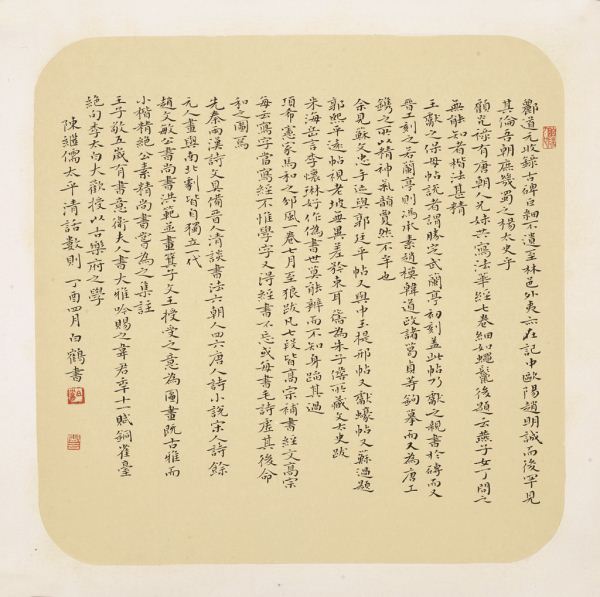 酈道元收錄古碑巨細不遺至林邑外夷亦在記中歐陽趙明誠而後罕見
其倫吾朝庶幾蜀之楊太史乎
顧光祿有唐朝人兄妹共寫法華經七卷細如蠅鬚後題云燕子女丁問之
無能知者楷法甚精
王獻之保母帖說者謂勝定武蘭亭初刻蓋此帖乃獻之親書於磚而又
晉工刻之若蘭亭則馮承素趙模韓道政諸葛貞等鉤摹而又為唐工
鐫之所以精神氣韻夐然不牟也
余見蘇文忠手迹與郭廷平帖又與中玉提刑帖又獻蠔帖又蘇過題
郭熙平遠帖視老坡無異差矜束耳舊為朱子儋所藏文太史跋
米海岳言李懷琳好作偽書世莫能辨而不知身蹈其過
項希憲家馬和之邠風一卷七月至狼跋凡七段皆高宗補書經文高宗
每云寫字當寫經不惟學字又得經書不忘或每書毛詩虛其後命
和之圖焉
先秦兩漢詩文具備晉人清談書法六朝人四六唐人詩小說宋人詩餘
元人畫與南北劇皆自獨立一代
趙文敏公書尚書洪範並畫箕子文王授受之意為圖畫既古雅而
小楷精絕公素精尚書嘗為之集註
王子敬五歲有書意衛夫人書大雅吟賜之韋君平十一賦銅雀臺
絕句李太白大歡授以古樂府之學
陳繼儒太平清話數則 丁酉四月白鶴書